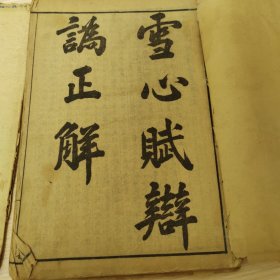 雪心賦辯
譌正解